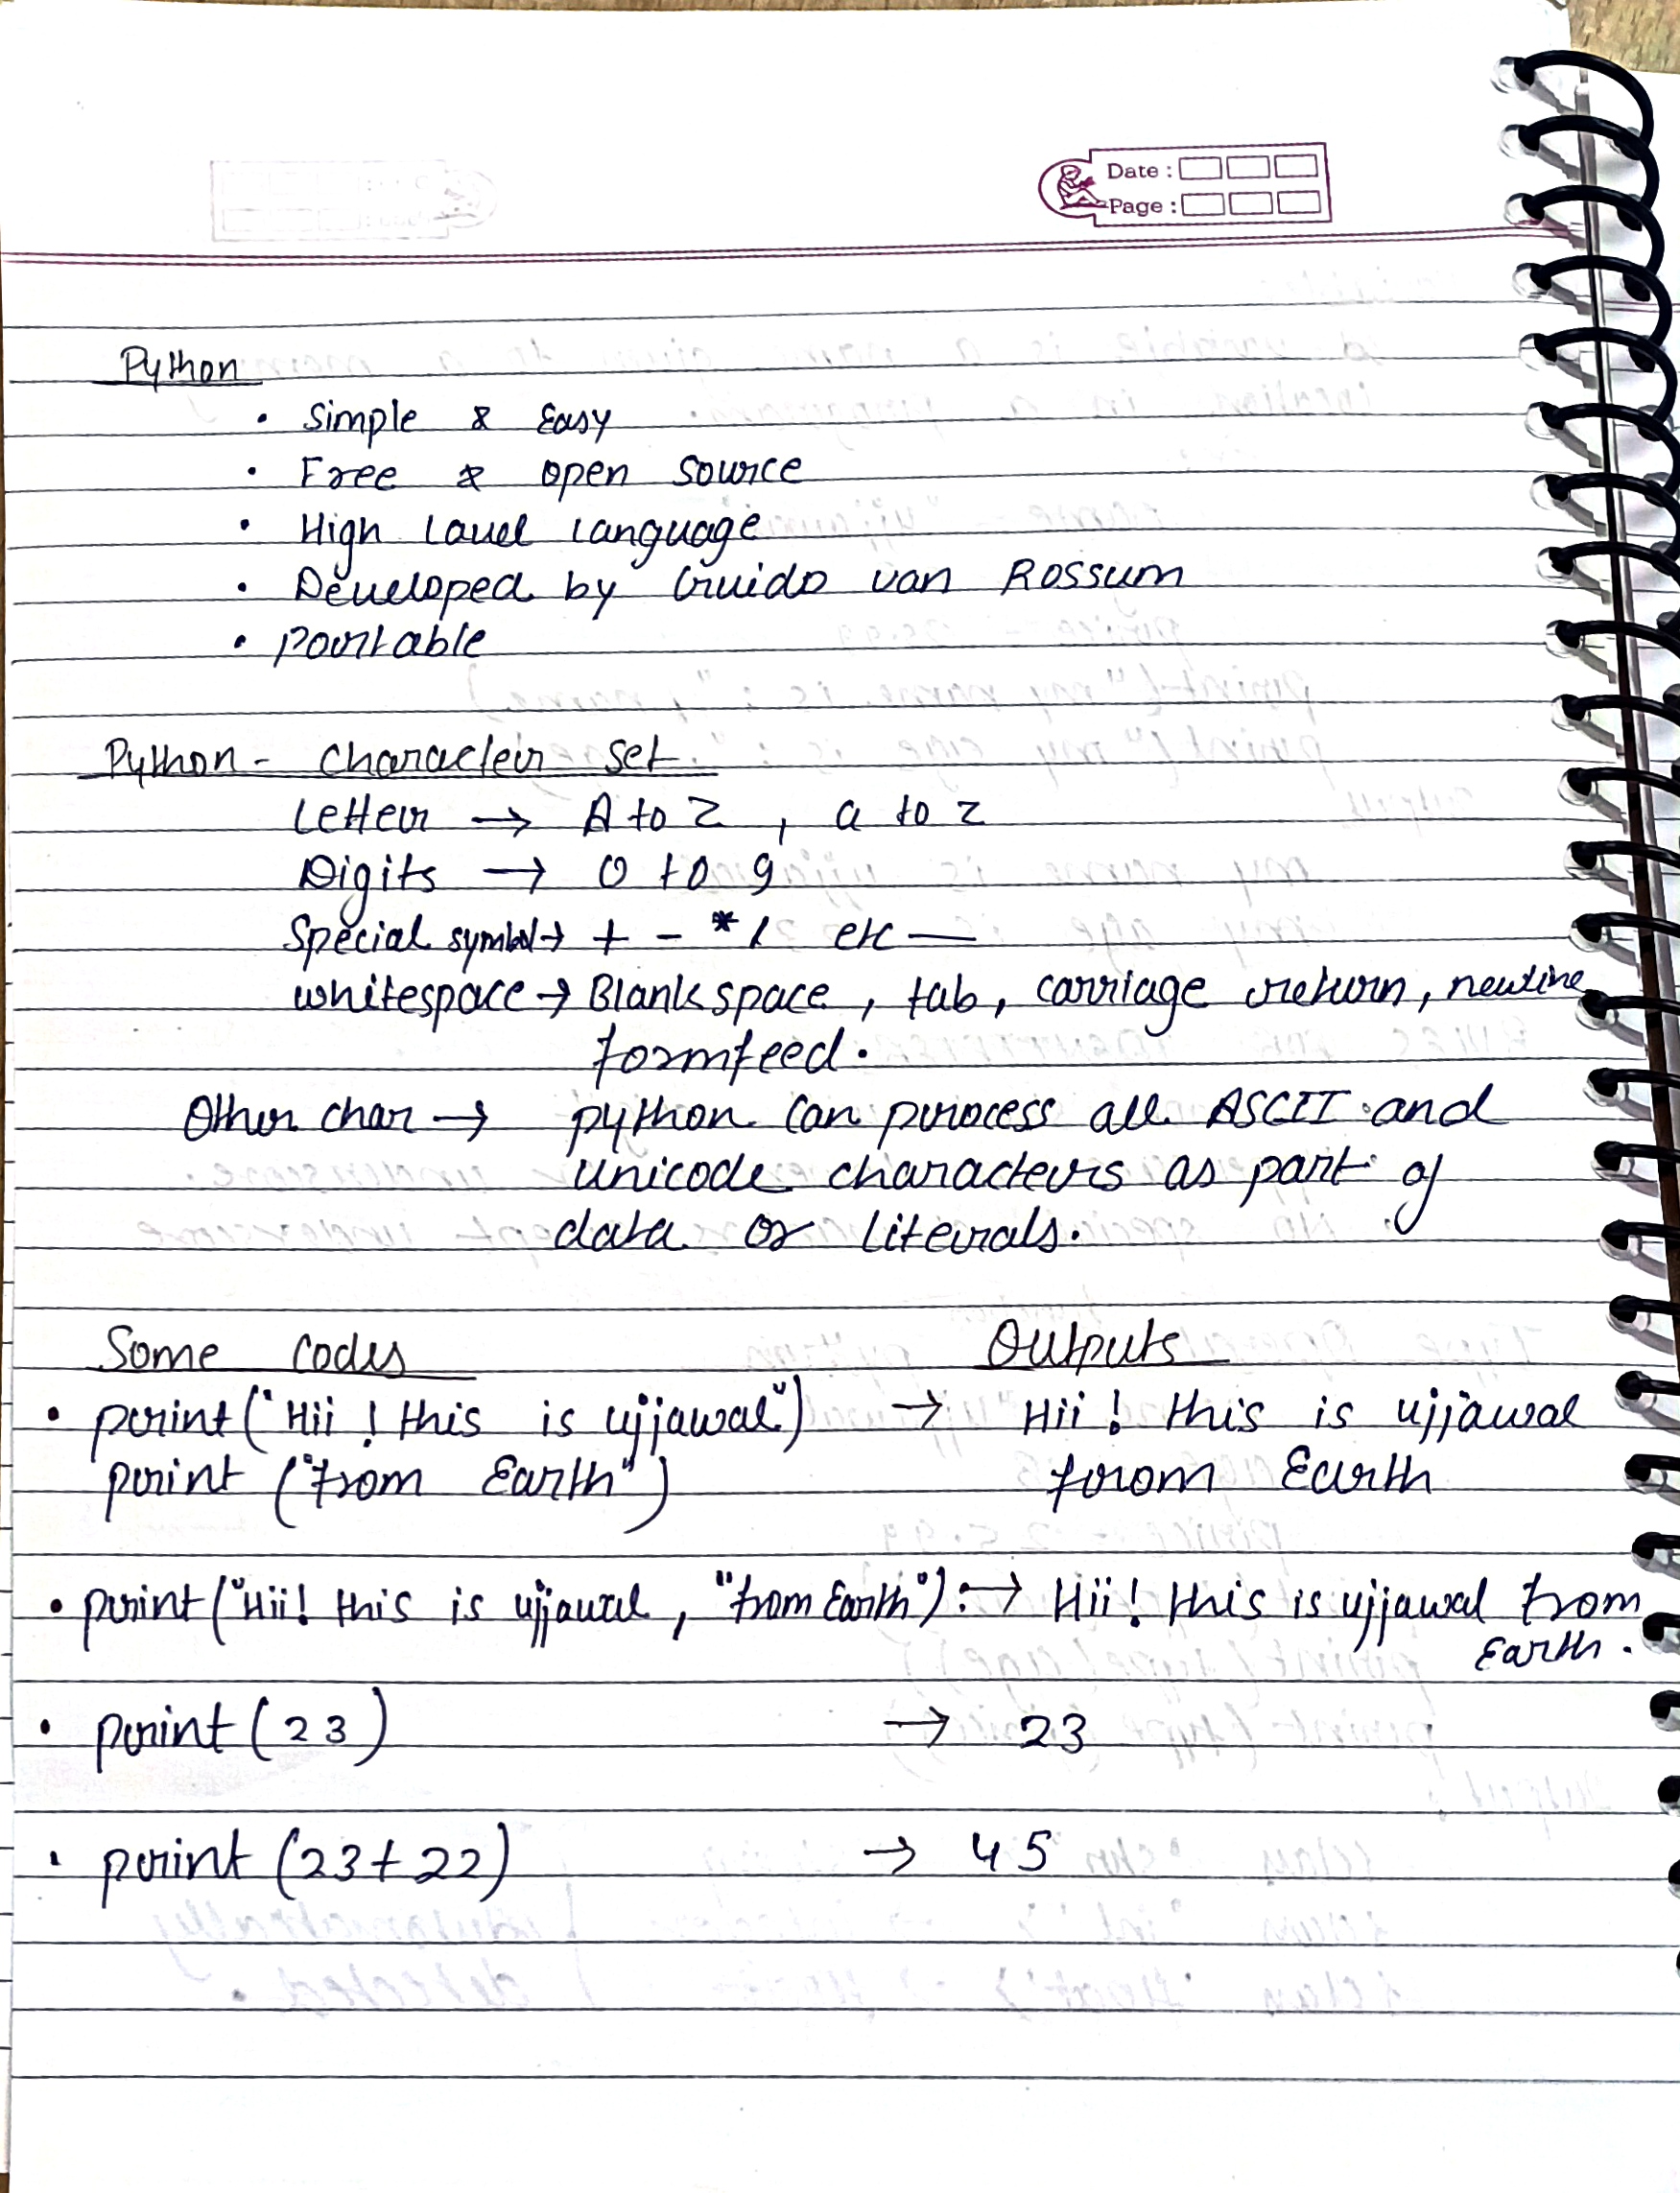 Date :
Page :
Python
• Simple & Easy
• Free & open source
• High Lavel language
• Developed by Guido van Rossum
• Portable
Python - character set
Letter → A to Z , a to z
Digits → 0 to 9
Special symbol → + - * / etc —
whitespace → Blank space , tab, carriage return, newline
formfeed.
Other char → python can process all ASCII and
unicode characters as part of
data or literals.
Some codes Outputs
• print("Hii ! this is ujjawal") → Hii ! this is ujjawal
print ("from Earth") from Earth
• print("Hii! this is ujjawal , "from Earth"): → Hii! this is ujjawal from
Earth.
• print(23) → 23
• print (23+22) → 45